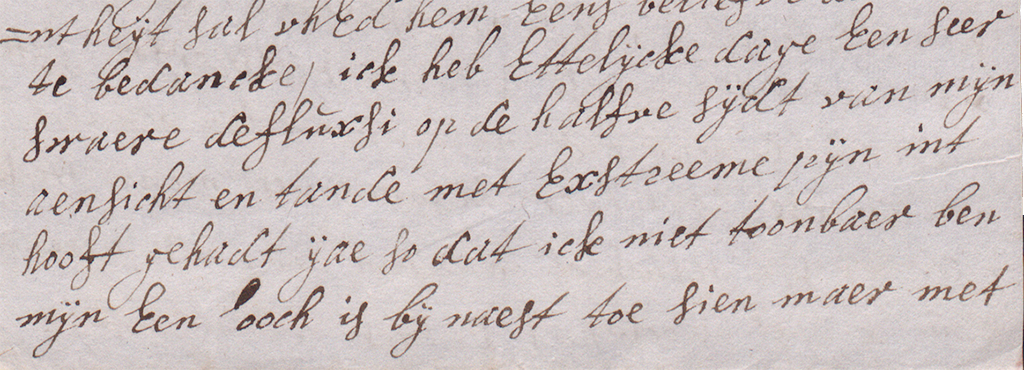 =ntheÿt sal vhEd hem Eens
te bedancke, ick heb Ettelÿcke dage Een seer
swaere defluxsi op de halfve sÿdt van mÿn
aensicht en tande met Exstreeme pÿn int
hooft gehadt ÿae so dat ick niet toonbaer ben
mÿn Een ooch is bÿ naest toe sien maer met